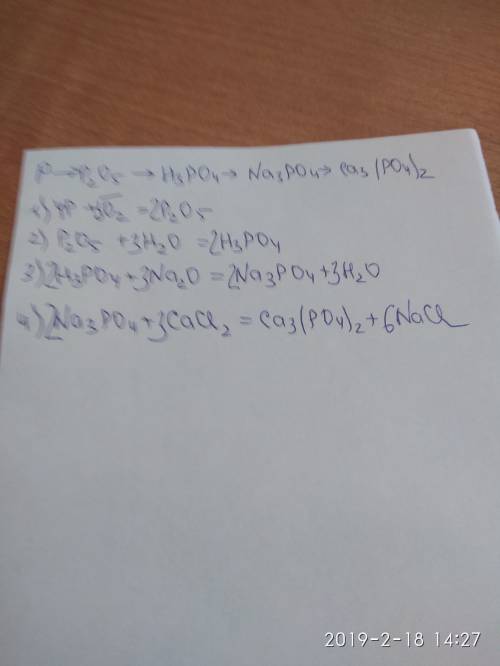 P → P₂O₅ → H₃PO₄ → Na₃PO₄ → Ca₃(PO₄)₂
1) 4P + 5O₂ = 2P₂O₅
2) P₂O₅ + 3H₂O = 2H₃PO₄
3) 2H₃PO₄ + 3Na₂O = 2Na₃PO₄ + 3H₂O
4) 2Na₃PO₄ + 3CaCl₂ = Ca₃(PO₄)₂ + 6NaCl
2019-2-18 14:27